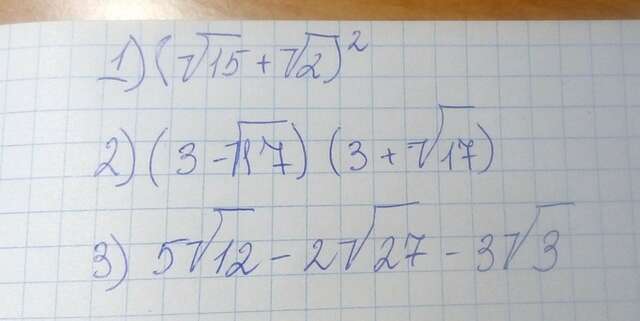 1) (√15 + √2)²
2) (3 - √17) (3 + √17)
3) 5√12 - 2√27 - 3√3